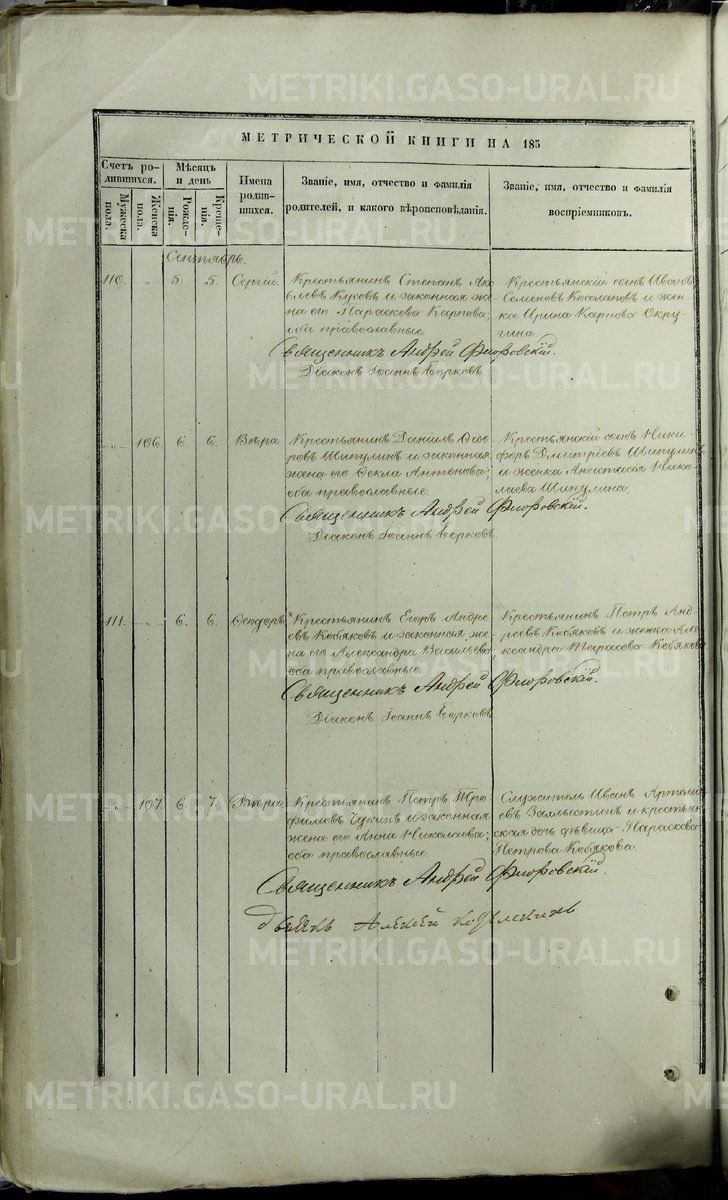 МЕТРИЧЕСКОЙ КНИГИ НА 185
Счетъ ро-
дившихся.
Мужеска
пола.
Женска
пола.
Мѣсяцъ
и день
Рожде-
нія.
Креще-
нія.
Имена
родив-
шихся.
Званіе, имя, отчество и фамилія
родителей, и какого вѣроисповѣданія.
Званіе, имя, отчество и фамилія
воспріемниковъ.
Сентябрь.
110. „ 5. 5. Сергій.
Крестьянинъ Степанъ Яко
влевъ Кусовъ и законная же
на его Параскева Карпова;
оба православные.
Крестьянскій сынъ Иванъ
Семеновъ Косолаповъ и жен
ка Ирина Карпова Окру
гина.
Священникъ Андрей Флоровскій.
Діаконъ Іоаннъ Борковъ.
„ 106. 6. 6. Вѣра.
Крестьянинъ Даніилъ Ѳедо
ровъ Шипулинъ и законная
жена его Ѳекла Антонова;
оба православные.
Крестьянскій сынъ Ники
форъ Дмитріевъ Шипулинъ
и женка Анастасія Нико
лаева Шипулина.
Священникъ Андрей Флоровскій.
Діаконъ Іоаннъ Борковъ.
111. „ 6. 6. Ѳеодоръ.
Крестьянинъ Егоръ Андре
евъ Кобяковъ и законная же
на его Александра Васильева
оба православные.
Крестьянинъ Петръ Анд
реевъ Кобяковъ и женка Але
ксандра Тарасова Кобякова
Священникъ Андрей Флоровскій.
Діаконъ Іоаннъ Борковъ
„ 107. 6. 7. Вѣра.
Крестьянинъ Петръ
филовъ и законная
жена его Анна Николаева;
оба православные.
Служитель Иванъ Артеми
евъ Замыстинъ и крестьян
ская дочь дѣвица Параскева
Петрова Кобякова.
Священникъ Андрей Флоровскій.
Дьячекъ Алексей
METRIKI.GASO-URAL.RU
METRIKI.GASO-URAL.RU
METRIKI.GASO-URAL.RU
METRIKI.GASO-URAL.RU
METRIKI.GASO-URAL.RU
METRIKI.GASO-URAL.RU
METRIKI.GASO-URAL.RU
METRIKI.GASO-URAL.RU